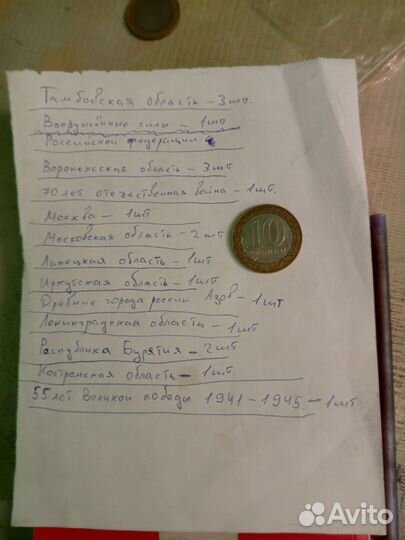 Тамбовская область – 3 шт.
Вооружённые силы – 1 шт.
Российской федерации
Воронежская область – 3 шт
70 лет отечественная война – 1 шт.
Москва – 1 шт
Московская область – 2 шт
Липецкая область – 1 шт
Иркутская область – 1 шт
Древние города россии Азов – 1 шт
Ленинградская область – 1 шт
Республика Бурятия – 2 шт
Костромская область – 1 шт.
55 лет Великой победы 1941 – 1945 – 1 шт
10
РУБЛЕЙ
Avito